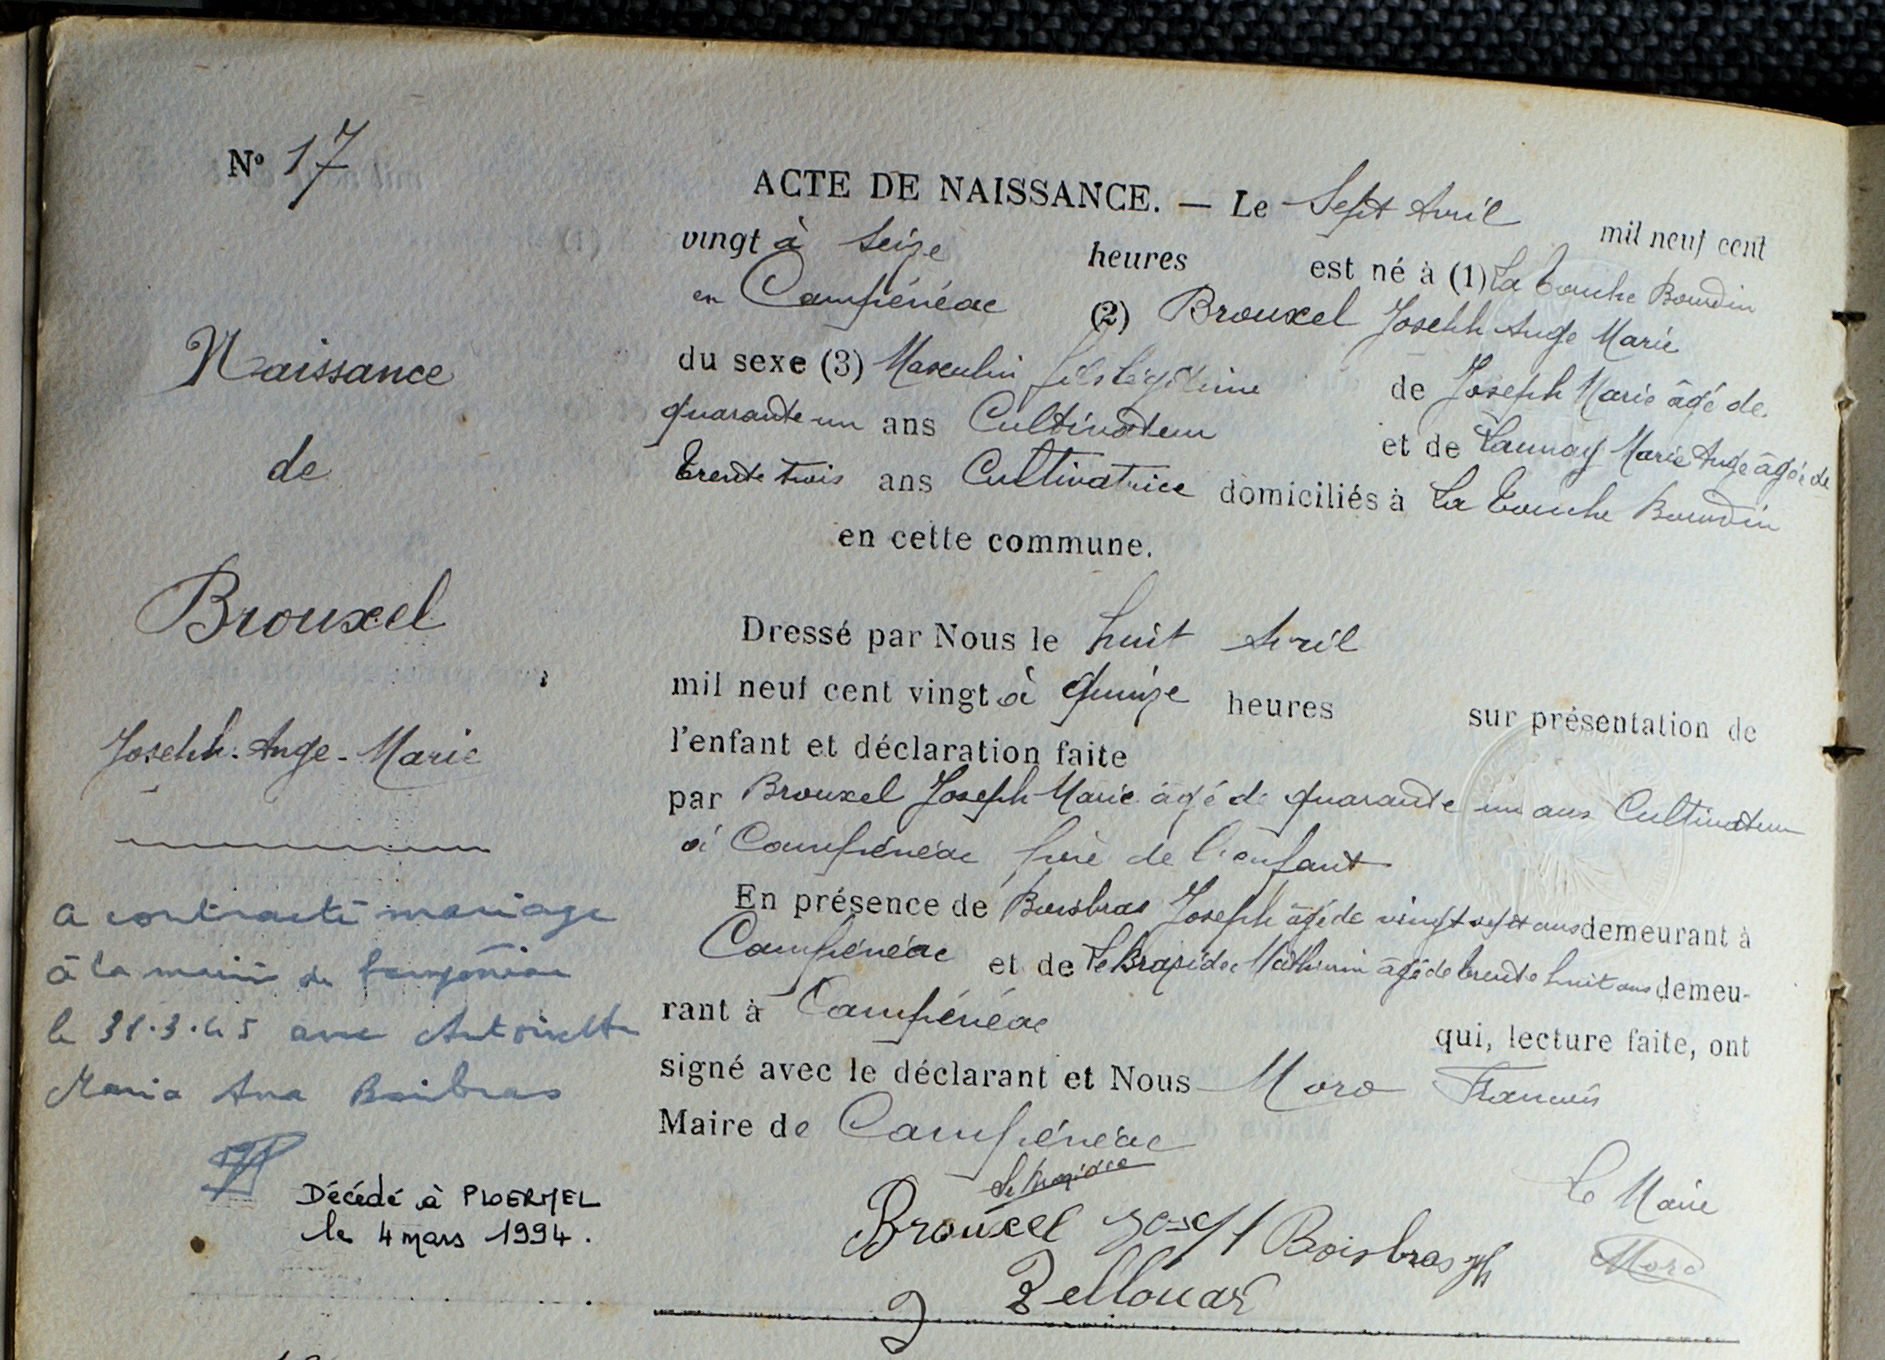 N° 17
Naissance
de
Brouxel
Joseph-Ange-Marie
a contracté mariage
à la mairie de
le 31.3.45 avec Antoinette
Maria Ana Boisbras
Décédé à PLOERMEL
le 4 mars 1994.
ACTE DE NAISSANCE. — Le Sept Avril mil neuf cent
vingt à Seize heures est né à (1) La Touche Bourdin
en Campénéac (2) Brouxel Joseph Ange Marie
du sexe (3) Masculin fils légitime de Joseph Marie âgé de
quarante un ans Cultivateur et de Launay Marie Ange âgée de
trente trois ans Cultivatrice domiciliés à La Touche Bourdin
en cette commune.
Dressé par Nous le huit Avril
mil neuf cent vingt à Quinze heures sur présentation de
l'enfant et déclaration faite
par Brouxel Joseph Marie âgé de quarante un ans Cultivateur
à Campénéac père de l'enfant
En présence de Boisbras Joseph âgé de vingt sept ans demeurant à
Campénéac et de Mathurin âgé de trente huit ans demeu-
rant à Campénéac qui, lecture faite, ont
signé avec le déclarant et Nous Moro François
Maire de Campénéac
Le Maire
Brouxel Josef Boisbras Jh
Moro